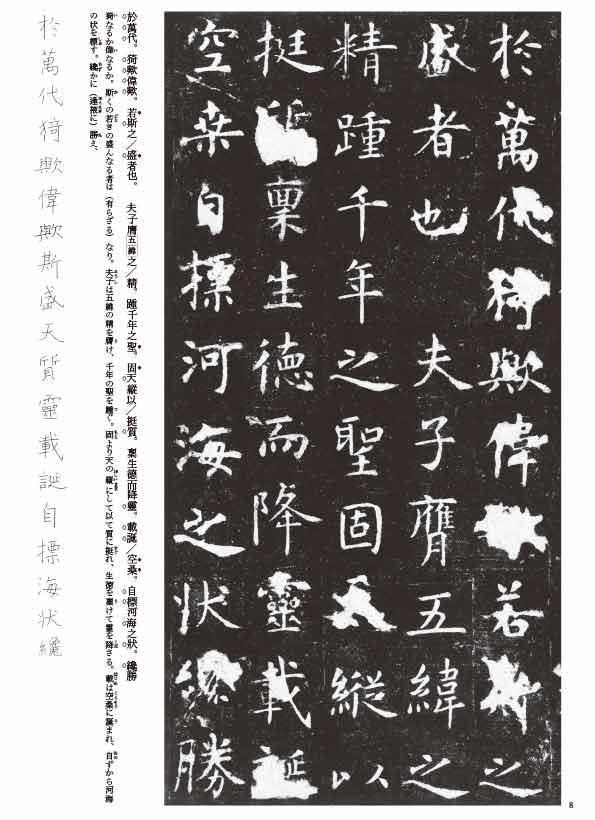 於萬代猗歟偉若之
盛者也　夫子膺五緯之
精踵千年之聖固天縱以
挺稟生德而降靈載誕
空桑自標河海之状纔勝
於萬代。猗歟偉歟。若斯之／盛者也。　夫子膺五緯之／精。踵千年之聖。固天縱以／挺質。稟生德而降靈。載誕／空桑。自標河海之狀。纔勝
猗なるか偉なるか。斯くの若きの盛んなる者は（有らざる）なり。夫子は五緯の精を膺け、千年の聖を踵ぐ。固より天の縱にして以て質に挺れ、生徳を稟けて靈を降さる。載は空桑に誕まれ、自ずから河海
の状を標す。纔かに（逢掖に）勝え、
於萬代猗歟偉歟斯盛天質靈載誕自標海状纔
8